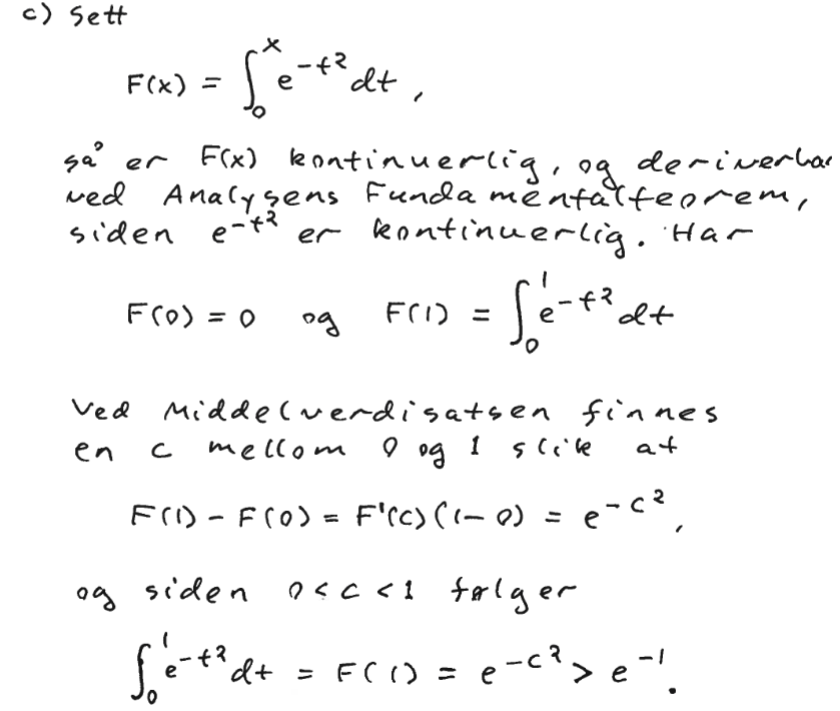 c) Sett
F(x) = ∫₀ˣ e^{-t²} dt ,
så er F(x) kontinuerlig, og deriverbar
ved Analysens Fundamentalteorem,
siden e^{-t²} er kontinuerlig. Har
F(0) = 0 og F(1) = ∫₀¹ e^{-t²} dt
Ved Middelverdisatsen finnes
en c mellom 0 og 1 slik at
F(1) - F(0) = F'(c)(1-0) = e^{-c²},
og siden 0 < c < 1 følger
∫₀¹ e^{-t²} dt = F(1) = e^{-c²} > e^{-1}.